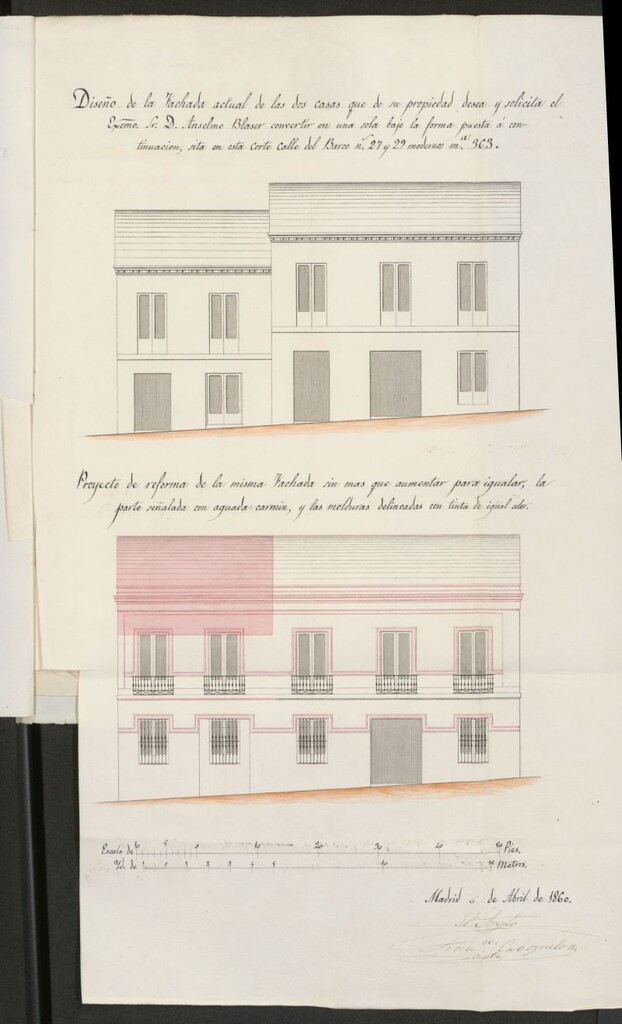 Diseño de la Fachada actual de las dos casas que de su propiedad desea y solicita el
Excmo. Sr. D. Anselmo Blaser convertir en una sola bajo la forma puesta á con-
tinuacion, sita en esta Corte Calle del Barco n.s 27 y 29 modernos m.a 363.
Proyecto de reforma de la misma Fachada sin mas que aumentar para igualar, la
parte señalada con aguada carmin, y las molduras delineadas con tinta de igual color.
Escala de 10 20 30 40 50 Pies.
Yd. de Metros.
Madrid 6 de Abril de 1860.
El Arqto